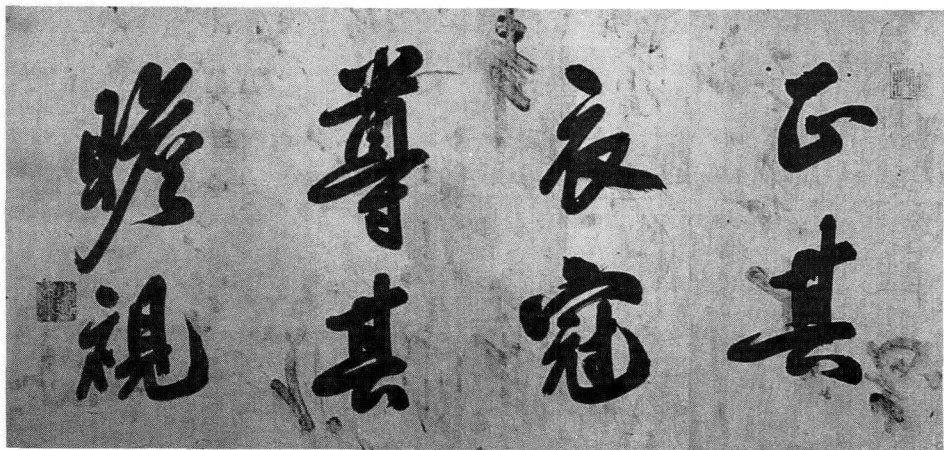 正其
衣冠
尊其
瞻視